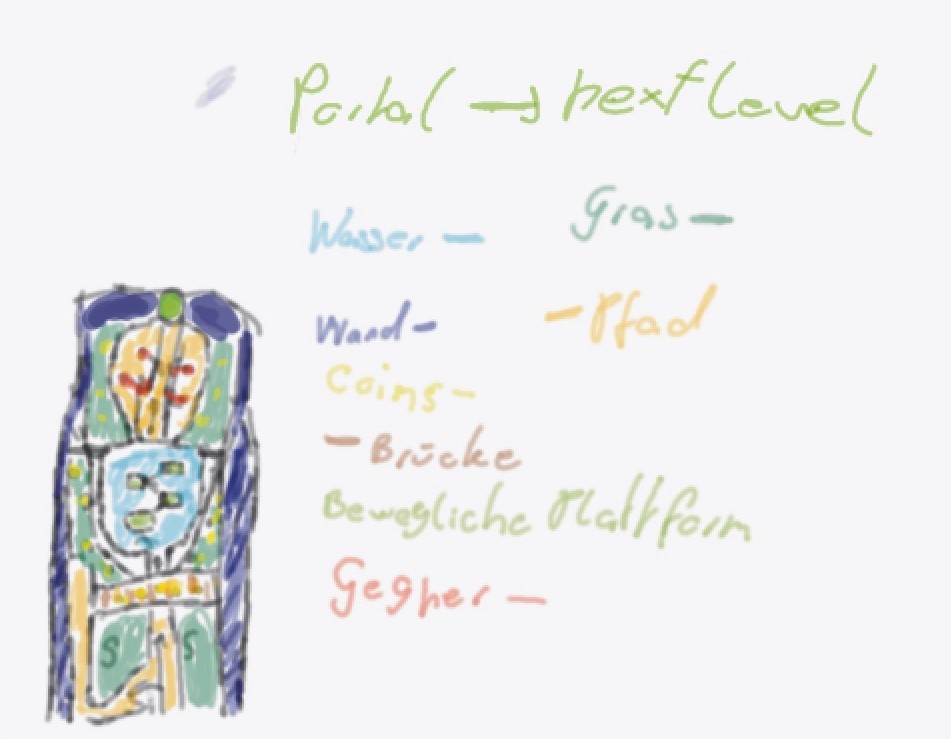 Portal → next Level
Wasser – Gras –
Wand – – Pfad
Coins –
– Brücke
Bewegliche Plattform
Gegner –
S S